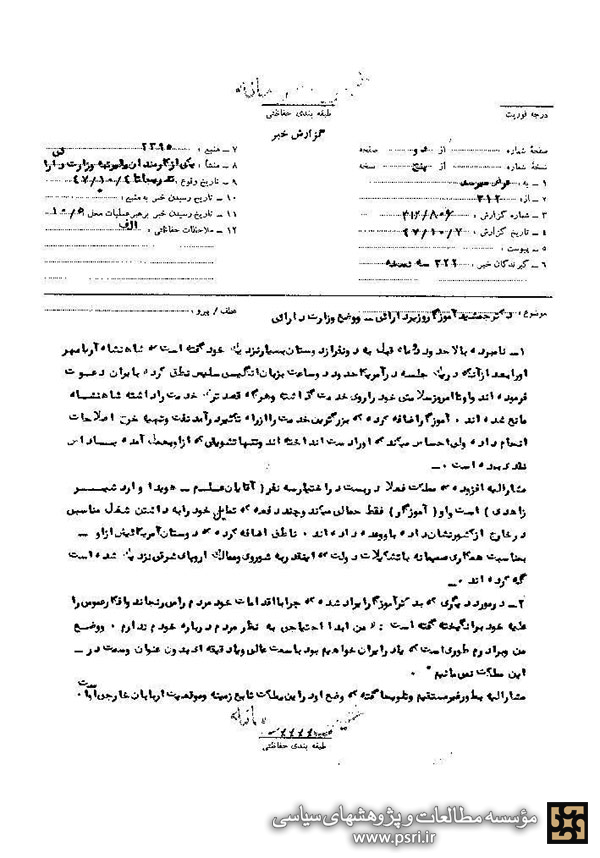 طبقه بندی حفاظتی
درجه فوریت
گزارش خبر
صفحهٔ شماره از دو صفحه
نسخهٔ شماره از پنج نسخه
۱ - به
۲ - از: ۳۱۲
۳ - شماره گزارش :
۴ - تاریخ گزارش : ۴۷/۱۰/۷
۵ - پیوست :
۶ - گیرندگان خبر : ۲۲۲ سه نسخه
۷ - منبع : ۲۳۹۵
۸ - منشأ : یکی از کارمندان وزارت دارائی
۹ - تاریخ وقوع : ۴۷/۱۰/۴
۱۰ - تاریخ رسیدن خبر به منبع :
۱۱ - تاریخ رسیدن خبر برهبر عملیات محل : ۱۰/۵
۱۲ - ملاحظات حفاظتی : الف
موضوع : دکتر جمشید آموزگار وزیر دارائی ــ و وضع وزارت دارائی
عطف / پیرو :
۱ــ نامبرده بالا حدود دو ماه قبل به دو نفر از دوستان بسیار نزدیک خود گفته است که شاهنشاه آریامهر
او را بعد از آنکه در یک جلسه در آمریکا حدود دو ساعت بزبان انگلیسی سلیس نطق کرده بایران دعوت
فرموده اند و او تا امروز سلامتی خود را روی خدمت گذاشته و هرگاه قصد ترک خدمت را داشته شاهنشاه
مانع شده اند . آموزگار اضافه کرده که بزرگترین خدمت را از راه تکثیر درآمد نفت و تهیه خرج اصلاحات
انجام داده ولی احساس میکند که او را دست انداخته اند و تنها تشویقی که از او بعمل آمده پاداش
نقدی بوده است .ــ
مشارالیه افزوده که مملکت فعلا دربست در اختیار سه نفر ( آقایان علم ــ هویدا و اردشیر
زاهدی ) است و او ( آموزگار ) فقط حمالی میکند و چند دفعه که تمایل خود را به داشتن شغل مناسبی
در خارج از کشور نشان داده باو وعده داده اند . ناطق اضافه کرده که دوستان آمریکائیش از او ــ
بمناسبت همکاری صمیمانه با تشکیلات دولت که اینقدر به شوروی و ممالک اروپای شرقی نزدیک شده است
گله کرده اند .ــ
۲ــ در مورد دیگری که به دکتر آموزگار ایراد شده که چرا با اقدامات خود مردم را میرنجاند و افکار عمومی را
علیه خود برانگیخته گفته است : « من ابدا احتیاجی به نظر مردم درباره خودم ندارم . و وضع
من و برادرم طوری است که یا در ایران خواهیم بود با سمت عالی و یا دقیقه ای بدون عنوان و سمت در ــ
این مملکت نمی مانیم » .
مشارالیه بطور غیر مستقیم و تلویحا گفته که وضع او در این مملکت تابع زمینه و موقعیت اربابان خارجی است .
طبقه بندی حفاظتی
مؤسسه مطالعات و پژوهشهای سیاسی
www.psri.ir